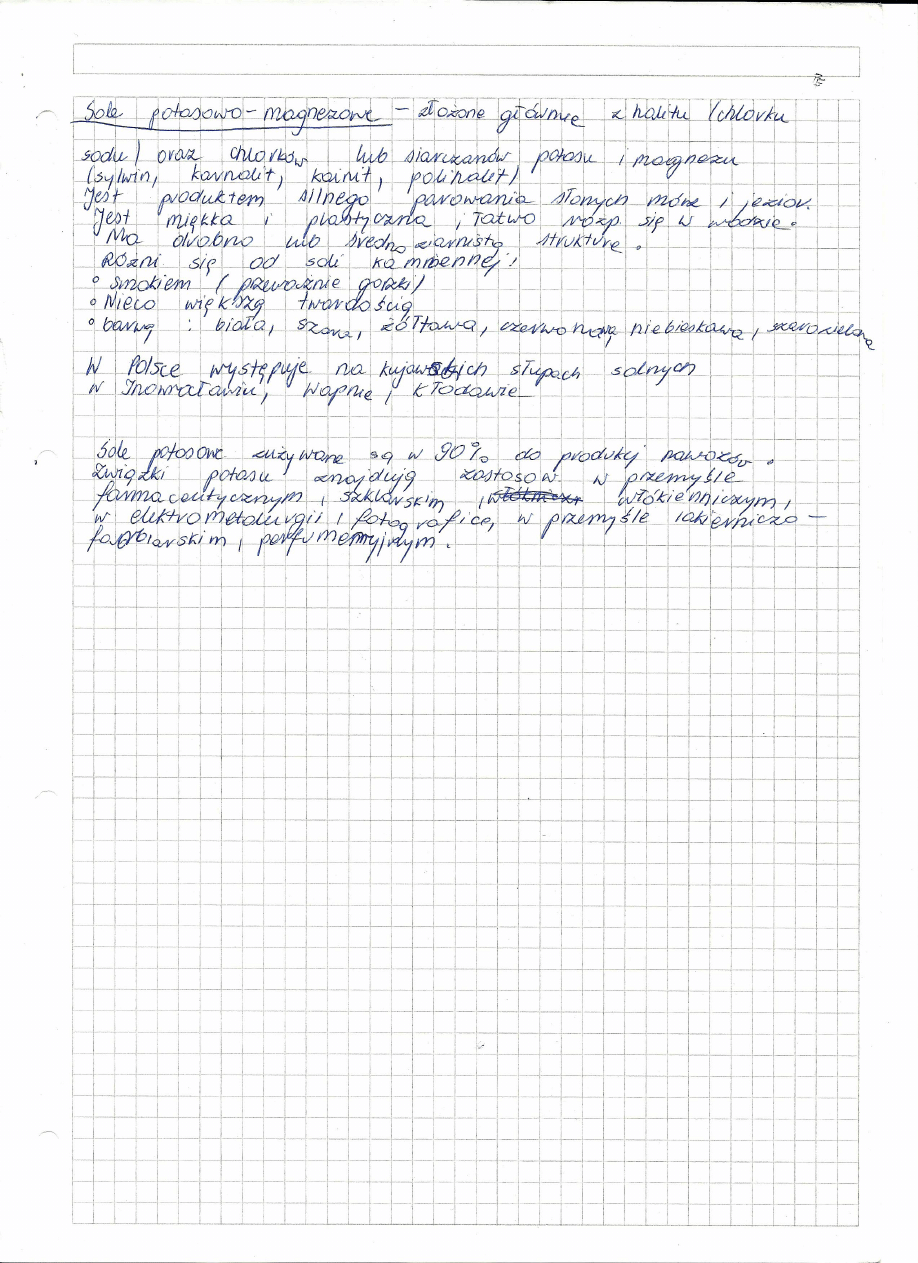 Sole potasowo-magnezowe - złożone głównie z halitu (chlorku
sodu) oraz chlorków lub siarczanów potasu i magnezu
(sylwin, karnalit, kainit, polihalit)
Jest produktem silnego parowania słonych mórz i jezior.
Jest miękka i plastyczna, łatwo rozp. się w wodzie.
Ma drobno lub średnioziarnistą strukturę.
Różni się od soli kamiennej:
° smakiem (przeważnie gorzki)
° Nieco większą twardością
° barwą : biała, szara, żółtawa, czerwonawa, niebieskawa, szarozielona
W Polsce występuje na kujawskich słupach solnych
w Inowrocławiu, Wapnie, Kłodawie
Sole potasowe zużywane są w 90% do produkcj nawozów.
Związki potasu znajdują zastosow. w przemyśle
farmaceutycznym, szklarskim, włókienniczym,
w elektrometalurgii, fotografice, w przemyśle lakierniczo-
farbiarskim, perfumeryjnym.